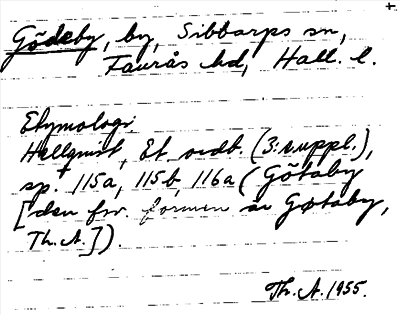 Gödeby, by, Sibbarps sn,
Faurås hd, Hall. l.
Etymologi.
Hellquist, Et. ordb. (3:e uppl.),
sp. 115a, 115b, 116a (Götaby
[den fsv. formen är Gøtaby,
Th. A.]).
Th. A. 1955.